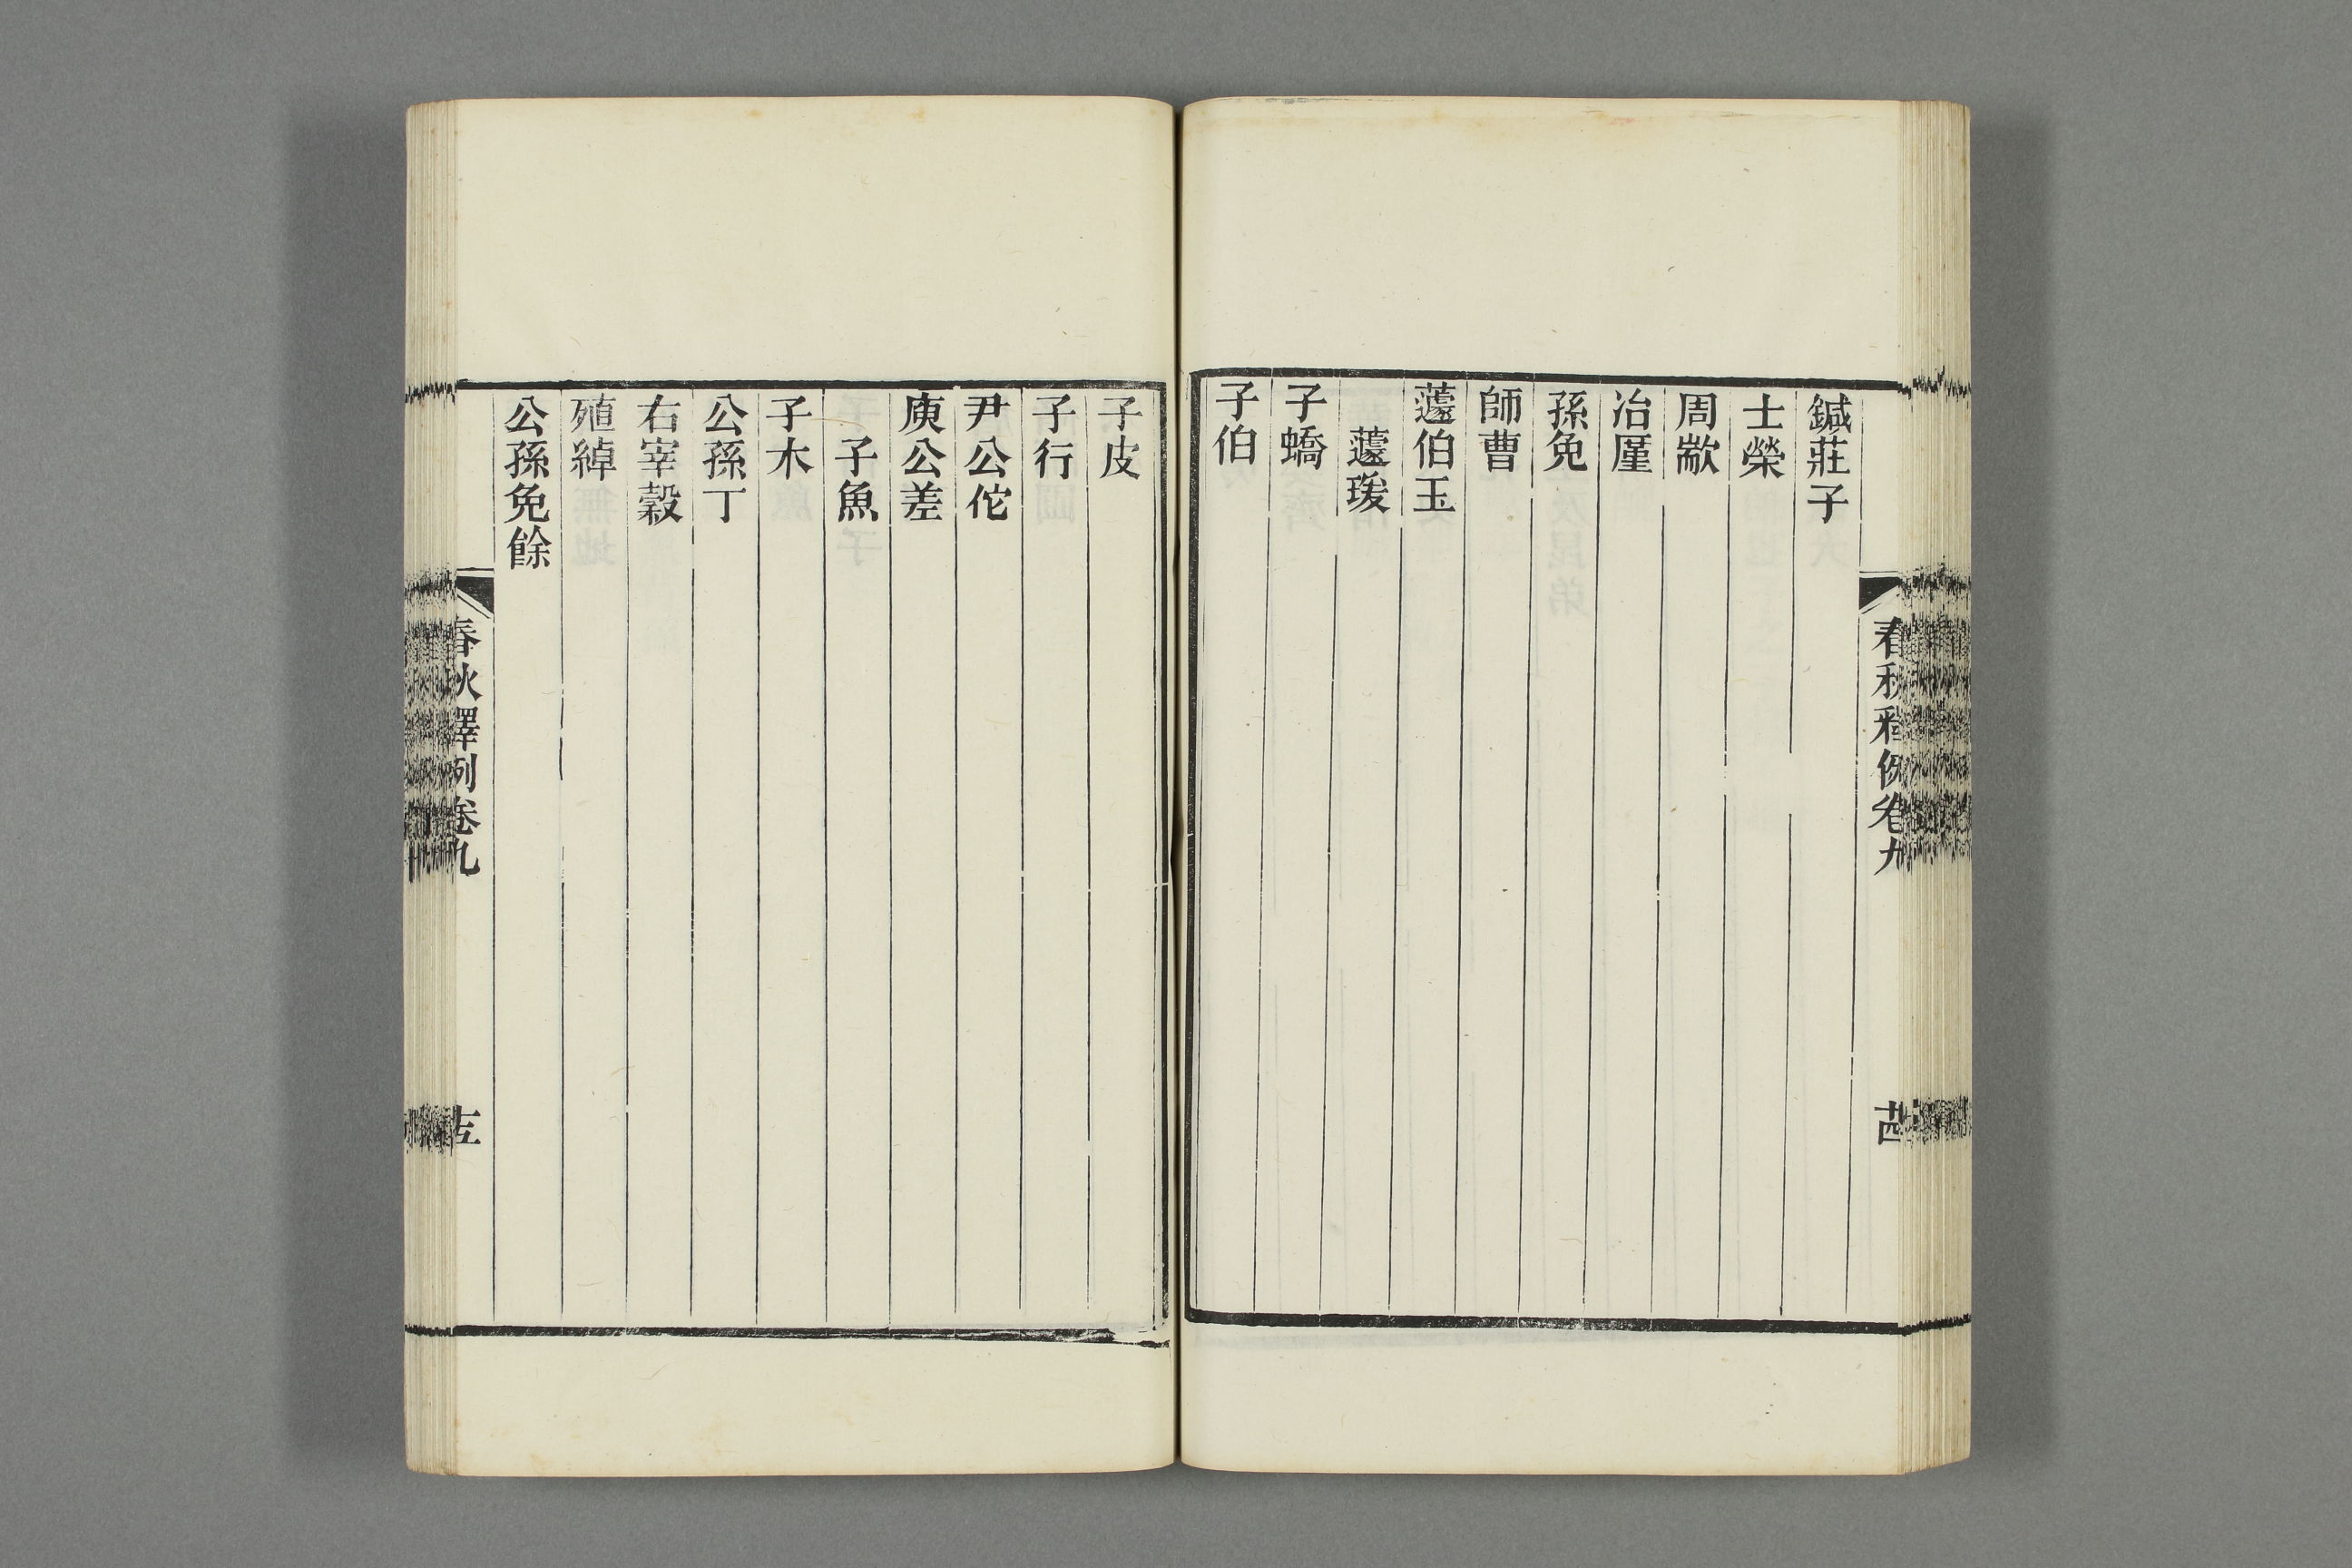 鍼莊子
士榮
周歂
冶廑
孫免
師曹
蘧伯玉
蘧瑗
子蟜
子伯
春秋釋例卷九
子皮
子行
尹公佗
庾公差
子魚
子木
公孫丁
右宰穀
殖綽
公孫免餘
春秋釋例卷九